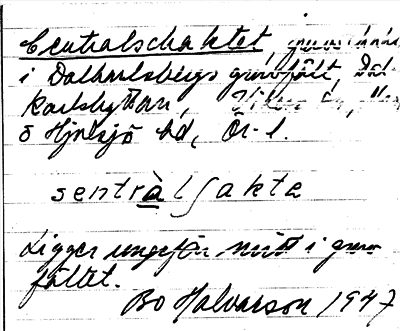 Centralschaktet,
i Dalkarlsbergs gruvfält, Dal-
karlshyttan,
ö Hjulsjö sd, Ör. l.
sentràlʃakta
Ligger ungefär mitt i gruv
fältet.
Bo Halvarson 1947